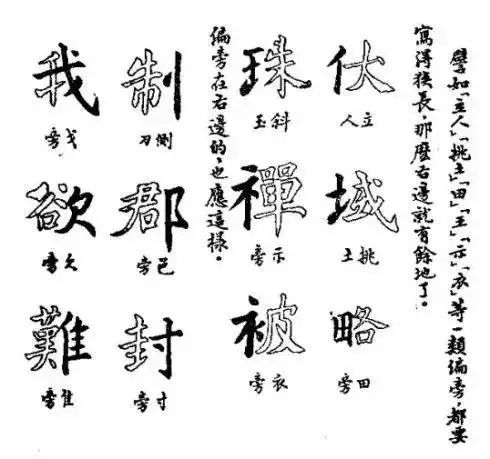 譬如「立人」「挑土」「田」「王」「示」「衣」等一類偏旁，都要
寫得狹長，那麽右邊就有餘地了。
伏
立人
域
挑土
略
田旁
珠
斜玉
禪
示旁
被
衣旁
偏旁在右邊的，也應這樣。
制
側刀
郡
邑旁
封
寸旁
我
戈旁
欲
欠旁
難
隹旁